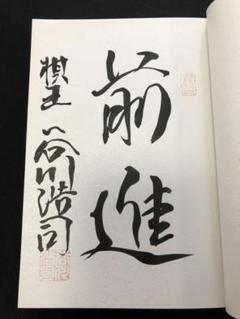 前進
棋王 谷川浩司